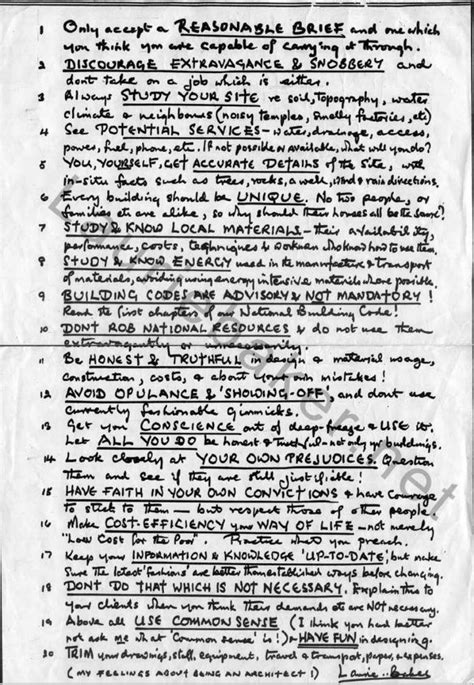 1 Only accept a REASONABLE BRIEF and one which
you think you are capable of carrying it through.
2 DISCOURAGE EXTRAVAGANCE & SNOBBERY and
dont take on a job which is either.
3 Always STUDY YOUR SITE re soil, topography, water
climate & neighbours (noisy temples, smelly factories, etc)
4 See POTENTIAL SERVICES - water, drainage, access,
power, fuel, phone, etc. If not possible or available, what will you do?
5 YOU, YOURSELF, GET ACCURATE DETAILS of the site, with
in-situ facts such as trees, rocks, a well, wind & rain directions.
6 Every building should be UNIQUE. No two people, or
families etc are alike, so why should their houses all be the same?
7 STUDY & KNOW LOCAL MATERIALS - their availability,
performance, costs, techniques & workmen who know how to use them.
8 STUDY & KNOW ENERGY used in the manufacture & transport
of materials, avoiding using energy intensive materials where possible.
9 BUILDING CODES ARE ADVISORY & NOT MANDATORY!
Read the first chapter of our National Building Code!
10 DONT ROB NATIONAL RESOURCES & do not use them
extravagantly or unnecessarily.
11 Be HONEST & TRUTHFUL in design & material usage,
construction, costs, & about your own mistakes!
12 AVOID OPULANCE & 'SHOWING-OFF', and dont use
currently fashionable Gimmicks.
13 Get your CONSCIENCE out of deep-freeze & USE it.
Let ALL YOU DO be honest & truthful - not only yr buildings.
14 Look closely at YOUR OWN PREJUDICES. Question
them and see if they are still justifiable!
15 HAVE FAITH IN YOUR OWN CONVICTIONS & have Courage
to stick to them - but respect those of other people.
16 Make COST-EFFICIENCY your WAY OF LIFE - not merely
"Low Cost for the Poor". Practice what you preach.
17 Keep your INFORMATION & KNOWLEDGE 'UP-TO-DATE', but make
sure the latest 'fashions' are better than established ways before changing.
18 DONT DO THAT WHICH IS NOT NECESSARY. Explain this to
your clients when you think their demands etc are NOT necessary.
19 Above all USE COMMON SENSE (I think you had better
not ask me what 'Common sense' is!) & HAVE FUN in designing.
20 TRIM your drawings, staff, equipment, travel & transport, paper, & expenses.
(MY FEELINGS ABOUT BEING AN ARCHITECT!) Laurie Baker
lauriebaker.net